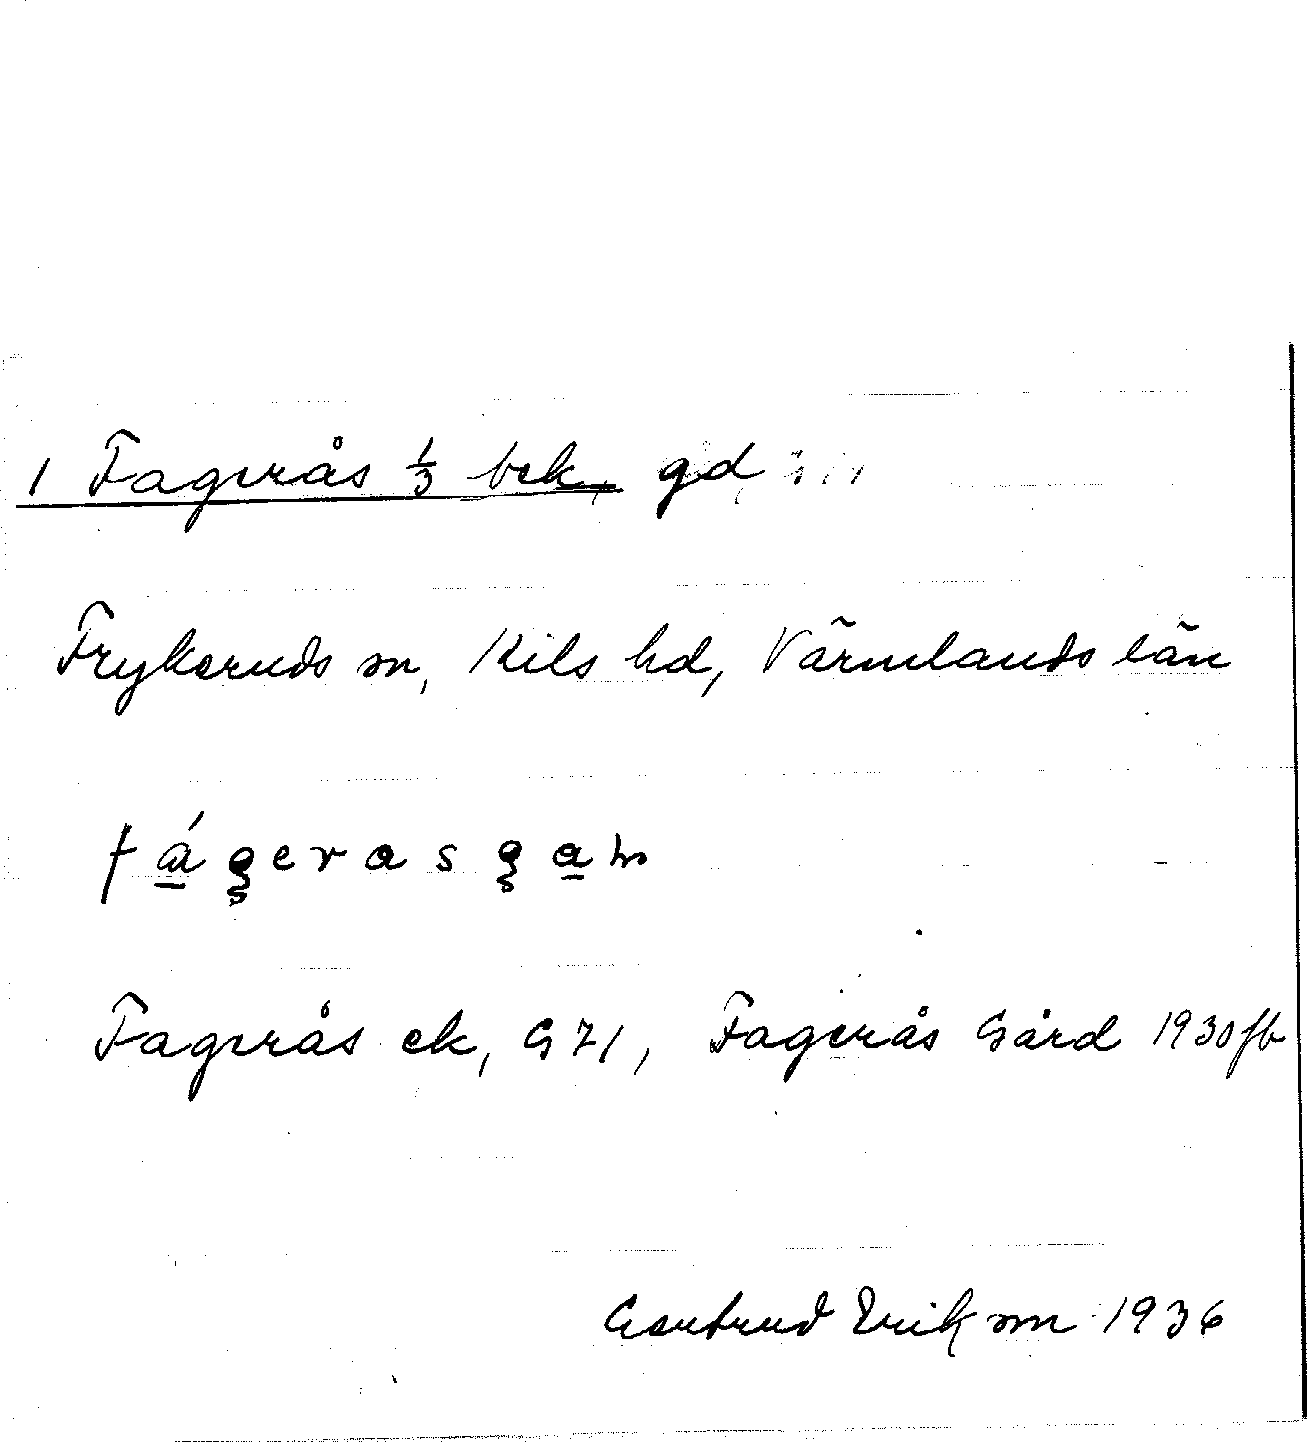 1 Fagerås 1/3 bek, gd
Frykeruds sn, Kils hd, Värmlands län
fágerasgaɳ
Fagerås ek, G71, Fagerås Gård 1930 fb
Gertrud Erikson 1936